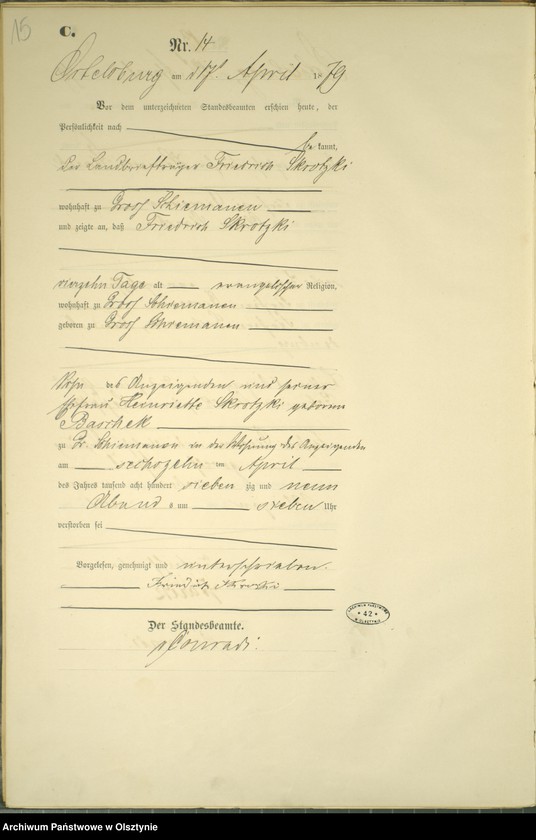 15
C.
Nr. 14
Ortelsburg am 17. April 1879
Vor dem unterzeichneten Standesbeamten erschien heute, der
Persönlichkeit nach
be kannt,
der Landbriefträger Friedrich Skrotzki
wohnhaft zu Gross Schiemanen
und zeigte an, daß Friedrich Skrotzki
vierzehn Tage alt evangelischer Religion,
wohnhaft zu Gross Schiemanen
geboren zu Gross Schiemanen
Sohn des Anzeigenden und seiner
Ehefrau Heinriette Skrotzki geborene
Baschek
zu Gr. Schiemanen in der Wohnung des Anzeigenden
am sechszehn ten April
des Jahres tausend acht hundert sieben zig und neun
Abend s um sieben Uhr
verstorben sei
Vorgelesen, genehmigt und unterschrieben.
Friedrich
Der Standesbeamte.
Conradi.
ARCHIWUM PAŃSTWOWE
* 42 *
W OLSZTYNIE
Archiwum Państwowe w Olsztynie